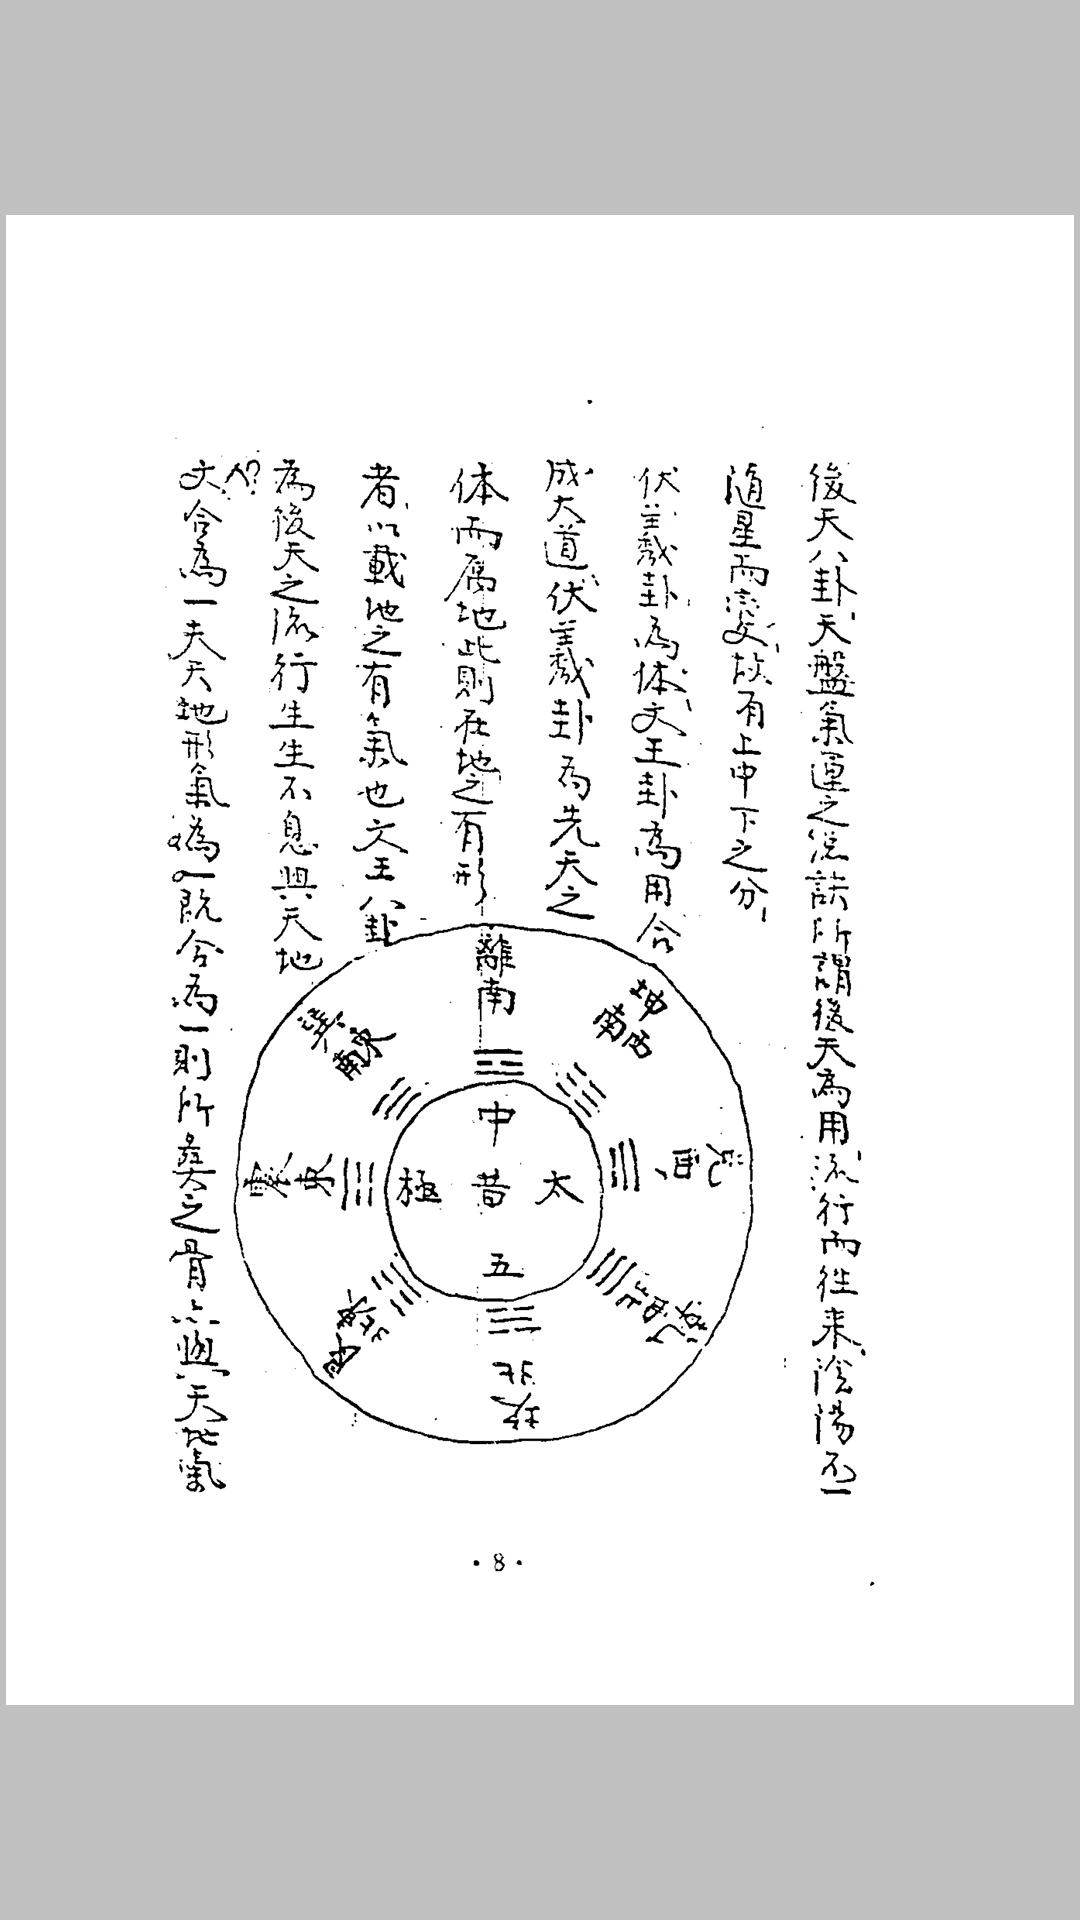 後天八卦天盤氣運之總訣所謂後天為用流行而往来陰陽不一
隨星而變故有上中下之分
伏羲卦為体文王卦為用合
成大道伏羲卦為先天之
体而属地此則在地之有形
者以載地之有氣也文王八卦
為後天之流行生生不息與天地
人?
文合為一夫天地形氣為一既合為一則所葬之骨亦與天地氣
離南
坤西南
兌西
乾西北
坎北
艮東北
震東
巽東南
中
太 極
五
·8·